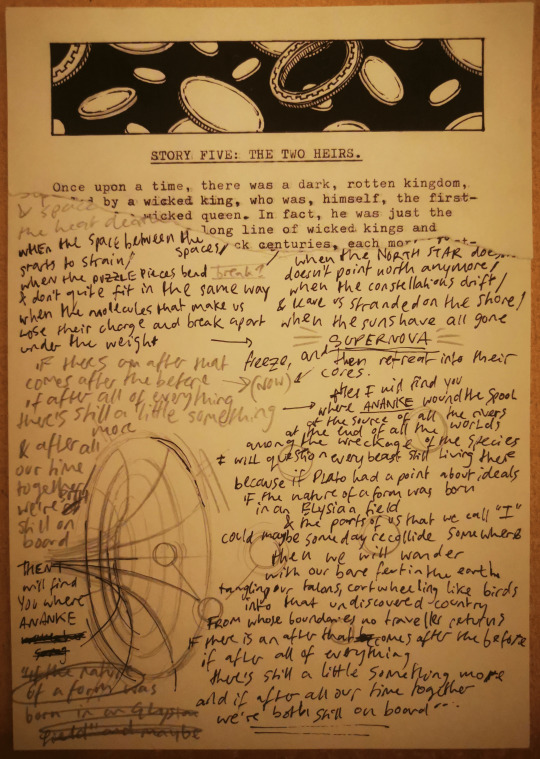 STORY FIVE: THE TWO HEIRS.
Once upon a time, there was a dark, rotten kingdom,
by a wicked king, who was, himself, the first-
wicked queen. In fact, he was just the
long line of wicked kings and
ck centuries, each mor
& space
the heat dea
when the space between the
spaces/
starts to strain/
when the PUZZLE pieces bend break?
& don't quite fit in the same way
when the molecules that make us
lose their charge and break apart
under the weight
if there's an after that
comes after the before
if after all of everything
there's still a little something
more
& after all
our time
together
we're both
still on
board
THEN I
will find
you where
ANANKE
"if the nature
of a form was
born in an Elysian
field" and maybe
when the NORTH STAR doe
doesn't point north anymore/
when the constellations drift/
& leave us stranded on the shore/
when the suns have all gone
SUPERNOVA
freeze, and then retreat into their
(NOW)
cores.
then I will find you
where ANANKE wound the spool
at the source of all the rivers
at the end of all the worlds
among the wreckage of the species
I will question every beast still living there
because if Plato had a point about ideals
if the nature of a form was born
in an Elysian field
& the parts of us that we call "I"
could maybe some day recollide somewhere
then we will wander
with our bare feet in the earth
tangling our talons, cartwheeling like birds
into that undiscovered country
from whose boundaries no traveller returns
if there is an after that comes after the before
if after all of everything
there's still a little something more
and if after all our time together
we're both still on board...